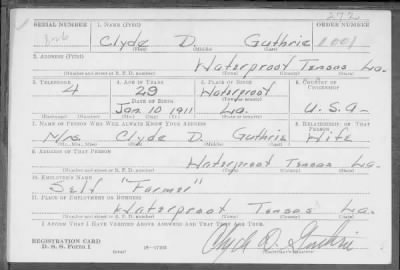 272
SERIAL NUMBER 1. NAME (Print) ORDER NUMBER
Clyde D. Guthrie
(First) (Middle) (Last)
2. ADDRESS (Print)
Waterproof Tensas La.
(Number and street or R. F. D. number) (Town) (County) (State)
3. TELEPHONE 4. AGE IN YEARS 5. PLACE OF BIRTH 6. COUNTRY OF CITIZENSHIP
4 29 Waterproof
DATE OF BIRTH (Town or county)
Jan 10 1911 La. U.S.A.
7. NAME OF PERSON WHO WILL ALWAYS KNOW YOUR ADDRESS 8. RELATIONSHIP OF THAT PERSON
Mrs. Clyde D. Guthrie Wife
(Mr., Mrs., Miss) (First) (Middle) (Last)
9. ADDRESS OF THAT PERSON
Waterproof Tensas La.
(Number and street or R. F. D. number) (Town) (County) (State)
10. EMPLOYER'S NAME
Self "Farmer"
11. PLACE OF EMPLOYMENT OR BUSINESS
Waterproof Tensas La.
(Number and street or R. F. D. number) (Town) (County) (State)
I AFFIRM THAT I HAVE VERIFIED ABOVE ANSWERS AND THAT THEY ARE TRUE.
REGISTRATION CARD
D. S. S. Form 1 Clyde D. Guthrie